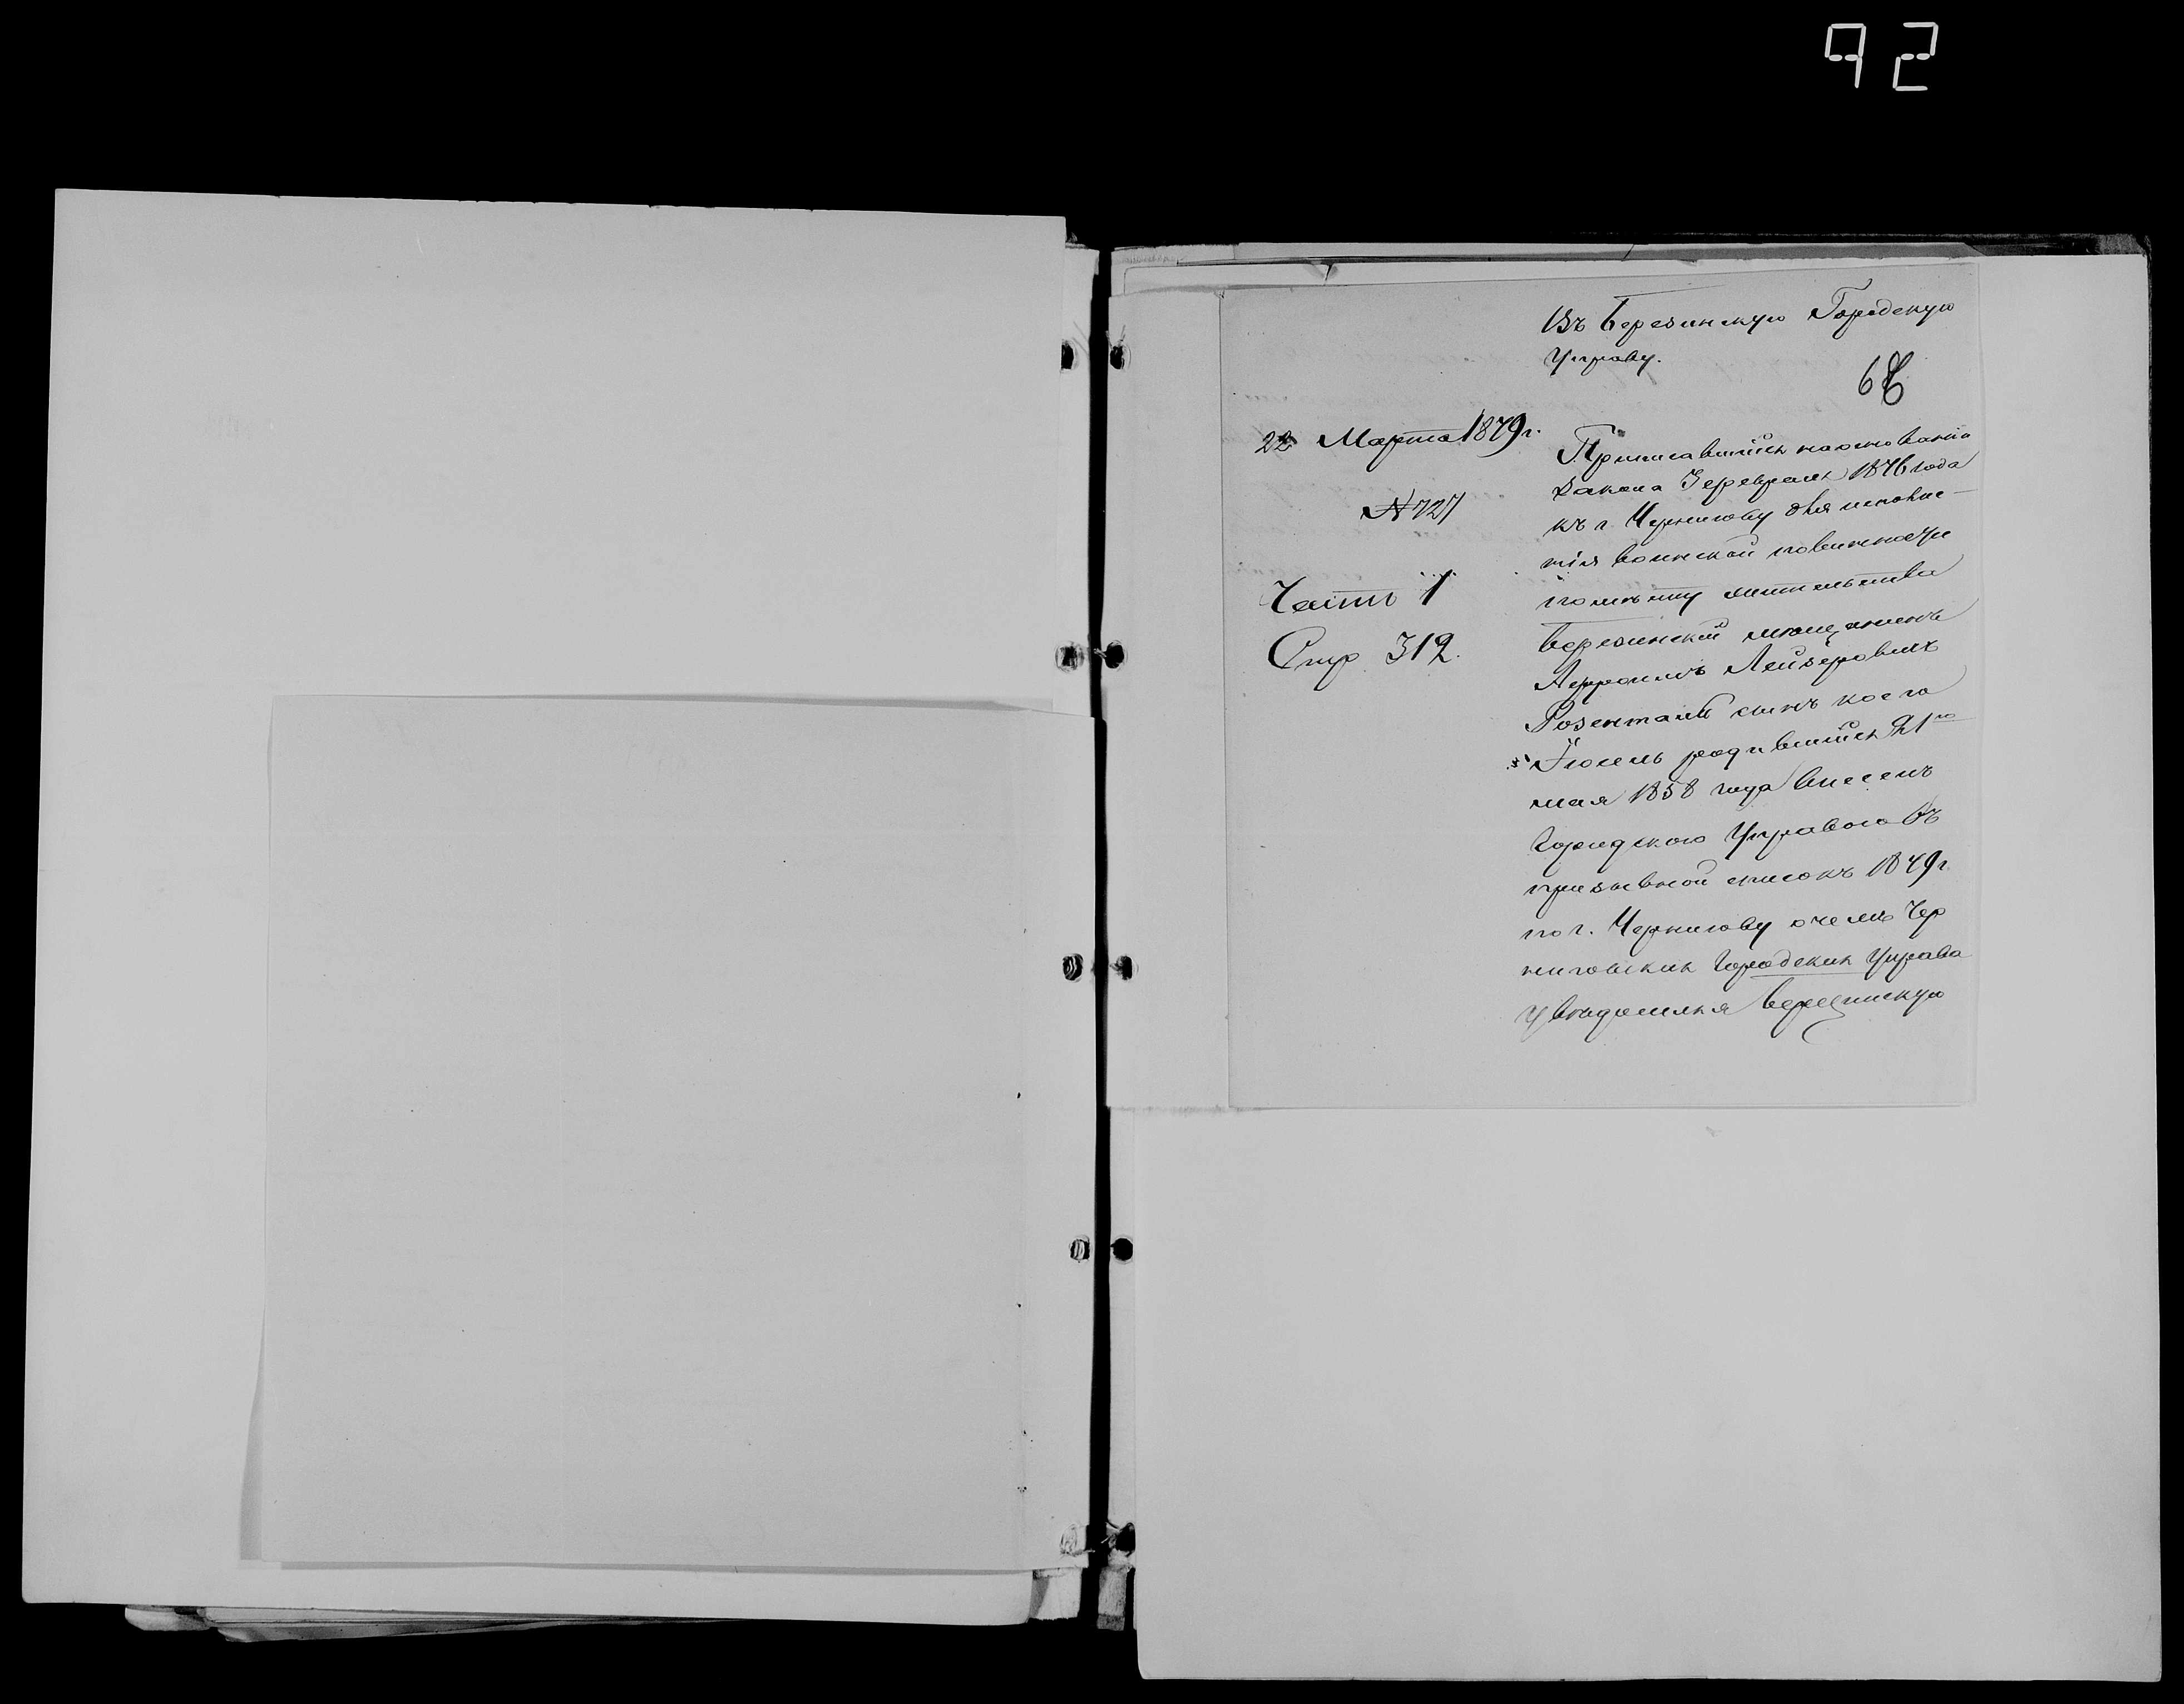 92
Въ Березинскую Городскую
Управу.
22 Марта 1879 г.
№ 727
Часть 1
Стр 312.
Приписавшійся на основаніи
закона 3 февраля 1876 года
къ г. Чернигову для исполне-
нія воинской повинности
по мѣсту жительства
березинскій мѣщанинъ
Лейзеровичъ
Розенталь сынъ коего
Іосель родившійся 21го
мая 1858 года внесенъ
Городскою Управою въ
призывной списокъ 1879 г.
по г. Чернигову о чемъ Чер
ниговская Городская Управа
увѣдомляя Березинскую